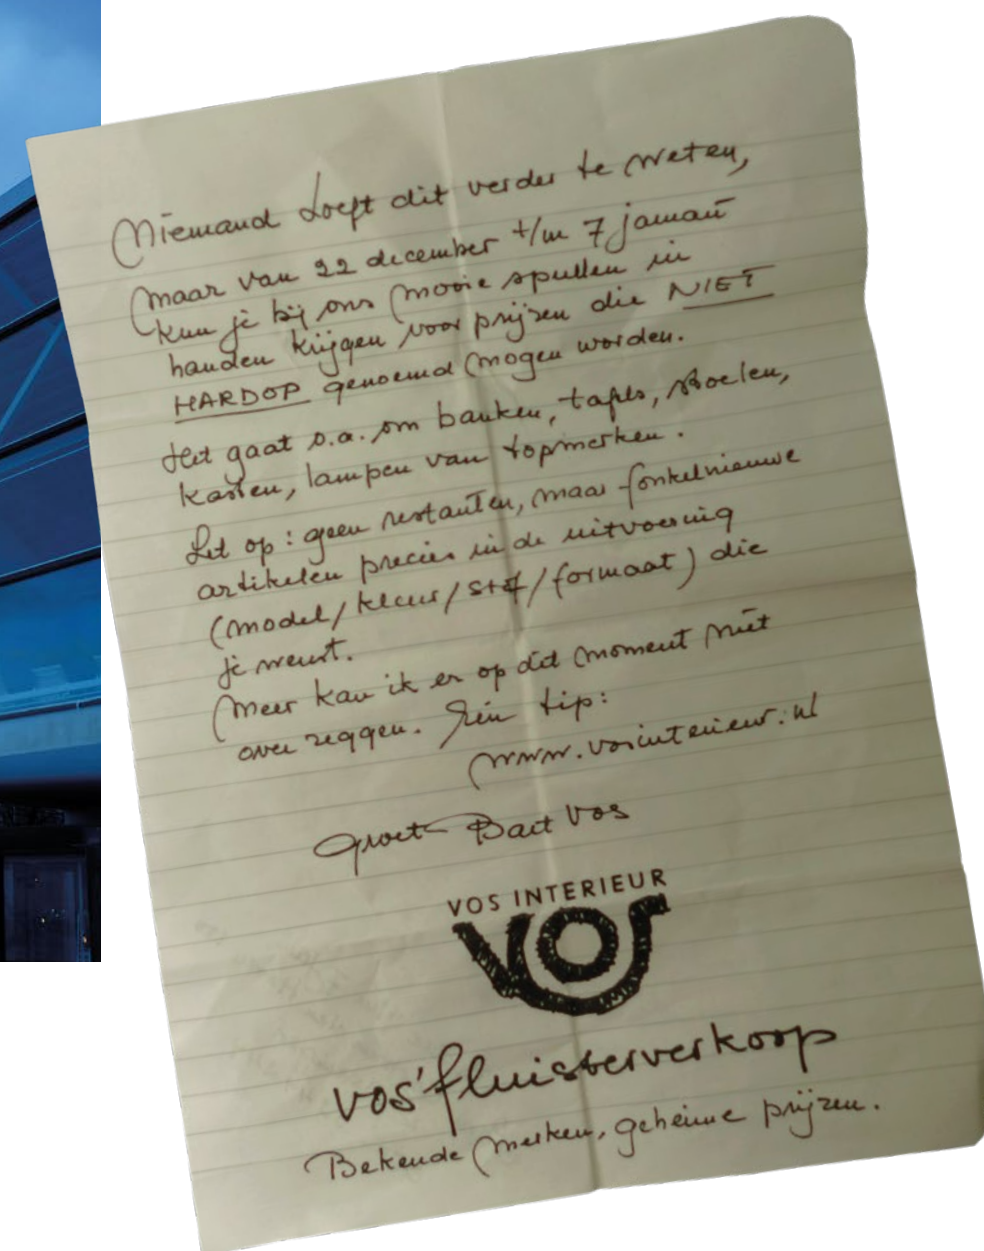 Niemand hoeft dit verder te weten,
maar van 22 december t/m 7 januari
kun je bij ons mooie spullen in
handen krijgen voor prijzen die NIET
HARDOP genoemd mogen worden.
Het gaat o.a. om banken, tafels, stoelen,
kasten, lampen van topmerken.
Let op: geen restanten, maar fonkelnieuwe
artikelen precies in de uitvoering
(model/kleur/stof/formaat) die
je wenst.
Meer kan ik er op dit moment niet
over zeggen. Eén tip:
www.vosinterieur.nl
Groet Bart Vos
VOS INTERIEUR
VOS
vos' fluisterverkoop
Bekende merken, geheime prijzen.